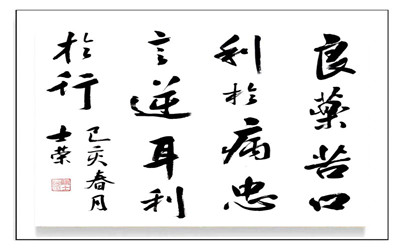 良藥苦口
利於病忠
言逆耳利
於行
己亥春月
士榮